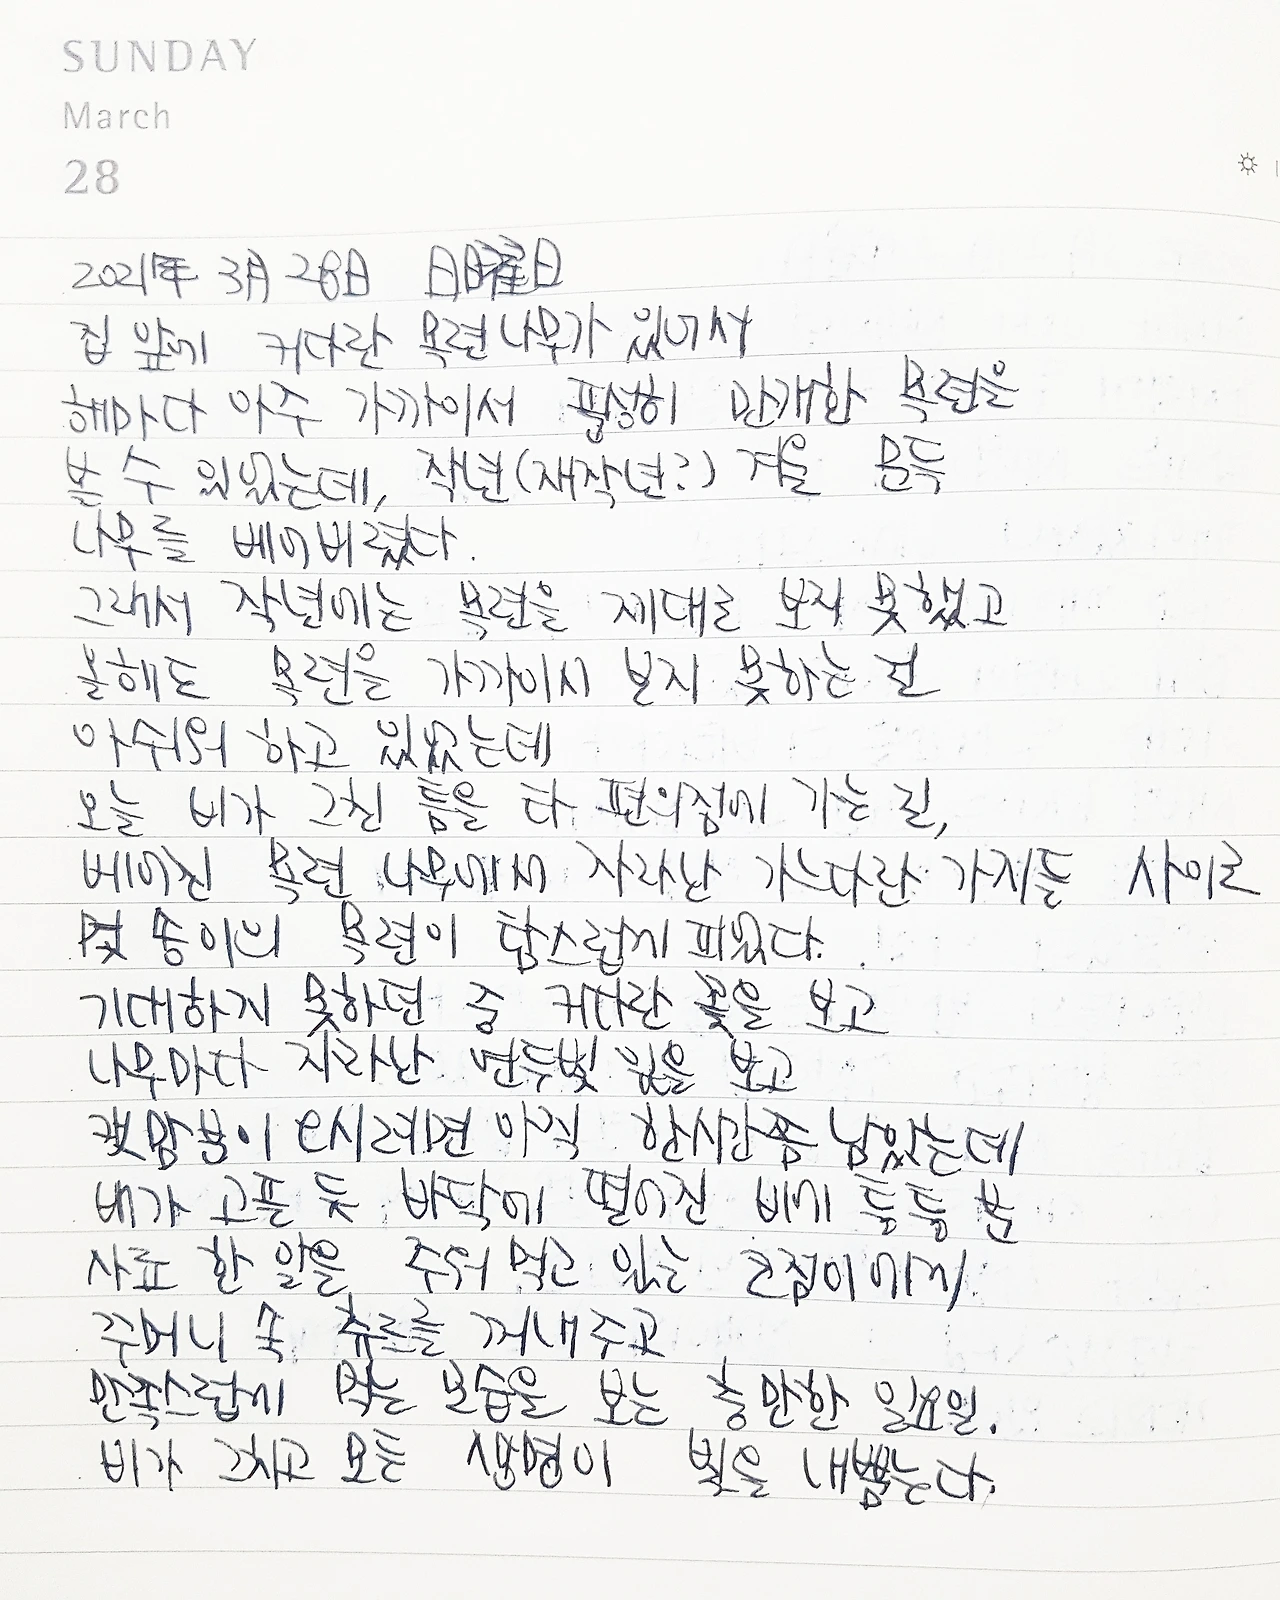 SUNDAY
March
28
2021年 3月 28日 日曜日
집 앞에 커다란 목련나무가 있어서
해마다 아주 가까이서 풍성히 만개한 목련을
볼 수 있었는데, 작년(재작년?) 겨울 문득
나무를 베어버렸다.
그래서 작년에는 목련을 제대로 보지 못했고
올해도 목련을 가까이서 보지 못하는 걸
아쉬워 하고 있었는데
오늘 비가 그친 틈을 타 편의점에 가는 길,
베어진 목련 나무에서 자라난 가느다란 가지들 사이로
몇 송이의 목련이 탐스럽게 피었다.
기대하지 못하던 중 커다란 꽃을 보고
나무마다 자라난 연두빛 잎을 보고
캣맘분이 오시려면 아직 한시간쯤 남았는데
배가 고픈 듯 바닥에 떨어진 비에 퉁퉁 분
사료 한 알을 주워 먹고 있는 큰점이에게
주머니 속 츄르를 꺼내주고
만족스럽게 먹는 모습을 보는 충만한 일요일.
비가 그치고 모든 생명이 빛을 내뿜는다.